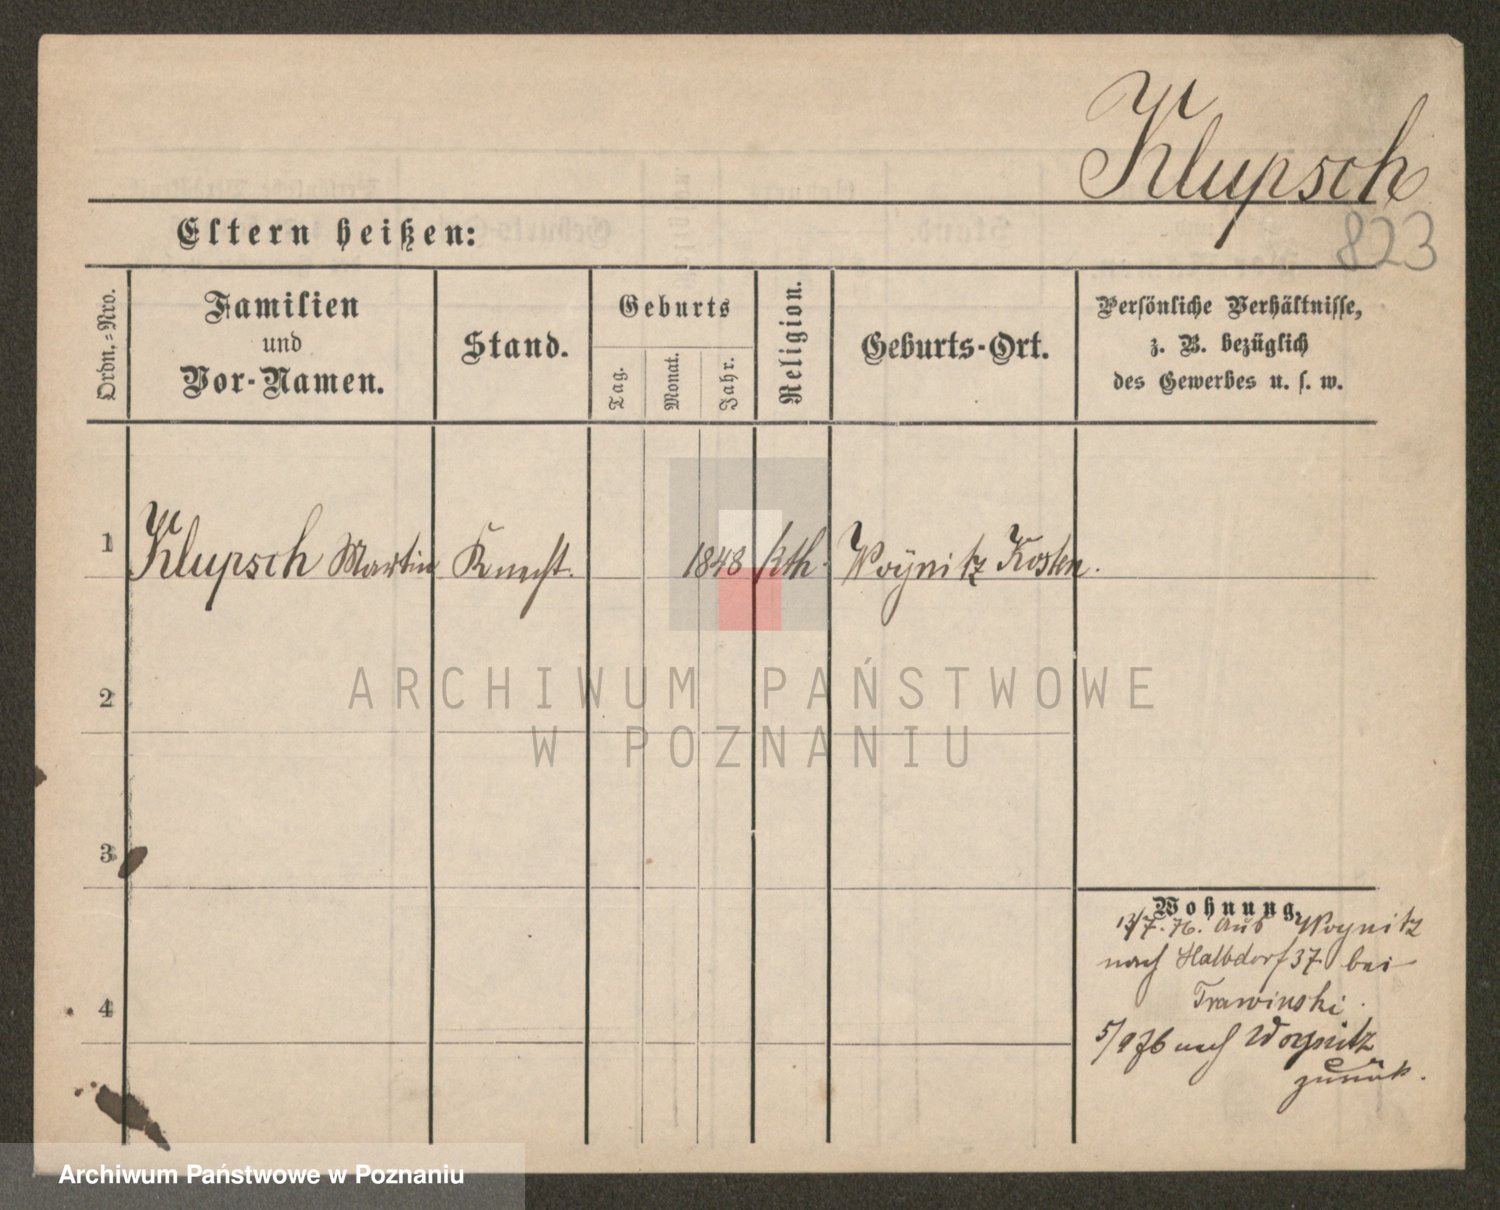 Klupsch
823
Eltern heißen:
Ordn.=Nro.
Familien
und
Vor-Namen.
Stand.
Geburts
Tag.
Monat.
Jahr.
Religion.
Geburts-Ort.
Persönliche Verhältnisse,
z. B. bezüglich
des Gewerbes u. s. w.
1 Klupsch Martin Knecht. 1848 kth. Woynitz Kosten.
ARCHIWUM PAŃSTWOWE
2
W POZNANIU
3
Wohnung.
13/7. 76. aus Woynitz
nach Halbdorf 37 bei
Trawinski.
4
5/9 76 nach Woynitz
zurück.
Archiwum Państwowe w Poznaniu